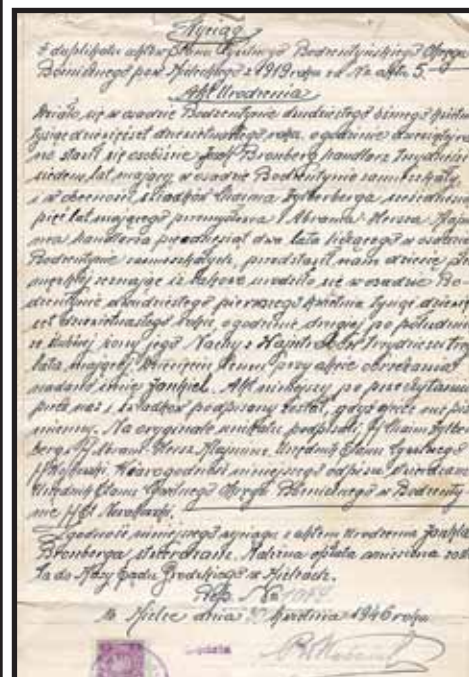 Wyciąg
z duplikatu aktów Stanu Cywilnego Bodzentyńskiego Okręgu
Bóżniczego pow. Kieleckiego z 1919 roku za No aktu 5
Akt Urodzenia
Działo się w osadzie Bodzentynie dwudziestego ósmego kwietnia
tysiąc dziewięćset dziewiętnastego roku, o godzinie dziesiątej ra-
no stawił się osobiście Josef Bromberg handlarz trzydzieści
siedem lat mający w osadzie Bodzentynie zamieszkały
i w obecności świadków Chaima Zylberberga sześćdziesiąt
pięć lat mającego i Abrama Hersza Klaj-
mera handlarza pięćdziesiąt dwa lata liczącego w osadzie
Bodzentynie zamieszkałych, przedstawił nam dziecię płci
męzkiej zeznając iż takowe urodziło się w osadzie Bo-
dzentynie dwudziestego pierwszego kwietnia tysiąc dziewięć-
set dziewiętnastego roku, o godzinie drugiej po południu
ze ślubnej żony jego Nachy z trzydzieści trzy
lata mającej. Dziecięciu temu przy akcie obrzezania
nadano imię Jankiel. Akt niniejszy po przeczytaniu
przez nas i świadków podpisany został, gdyż ojciec nie pi-
śmienny. Na oryginale unikatu podpisali /-/ Chaim Zylber-
berg /-/ Abram Hersz Klajmer. Urzędnik Stanu Cywilnego
/-/ . Wiarogodność niniejszego odpisu stwierdzam.
Urzędnik Stanu Cywilnego Okręgu Bóżniczego w Bodzenty-
nie /-/
Zgodność niniejszego wyciągu z aktem urodzenia Jankla
Bromberga stwierdzam. Należna opłata uniesiona zosta-
ła do Kasy Sądu Grodzkiego w Kielcach.
Rep. No
m. Kielce dnia kwietnia 1946 roku